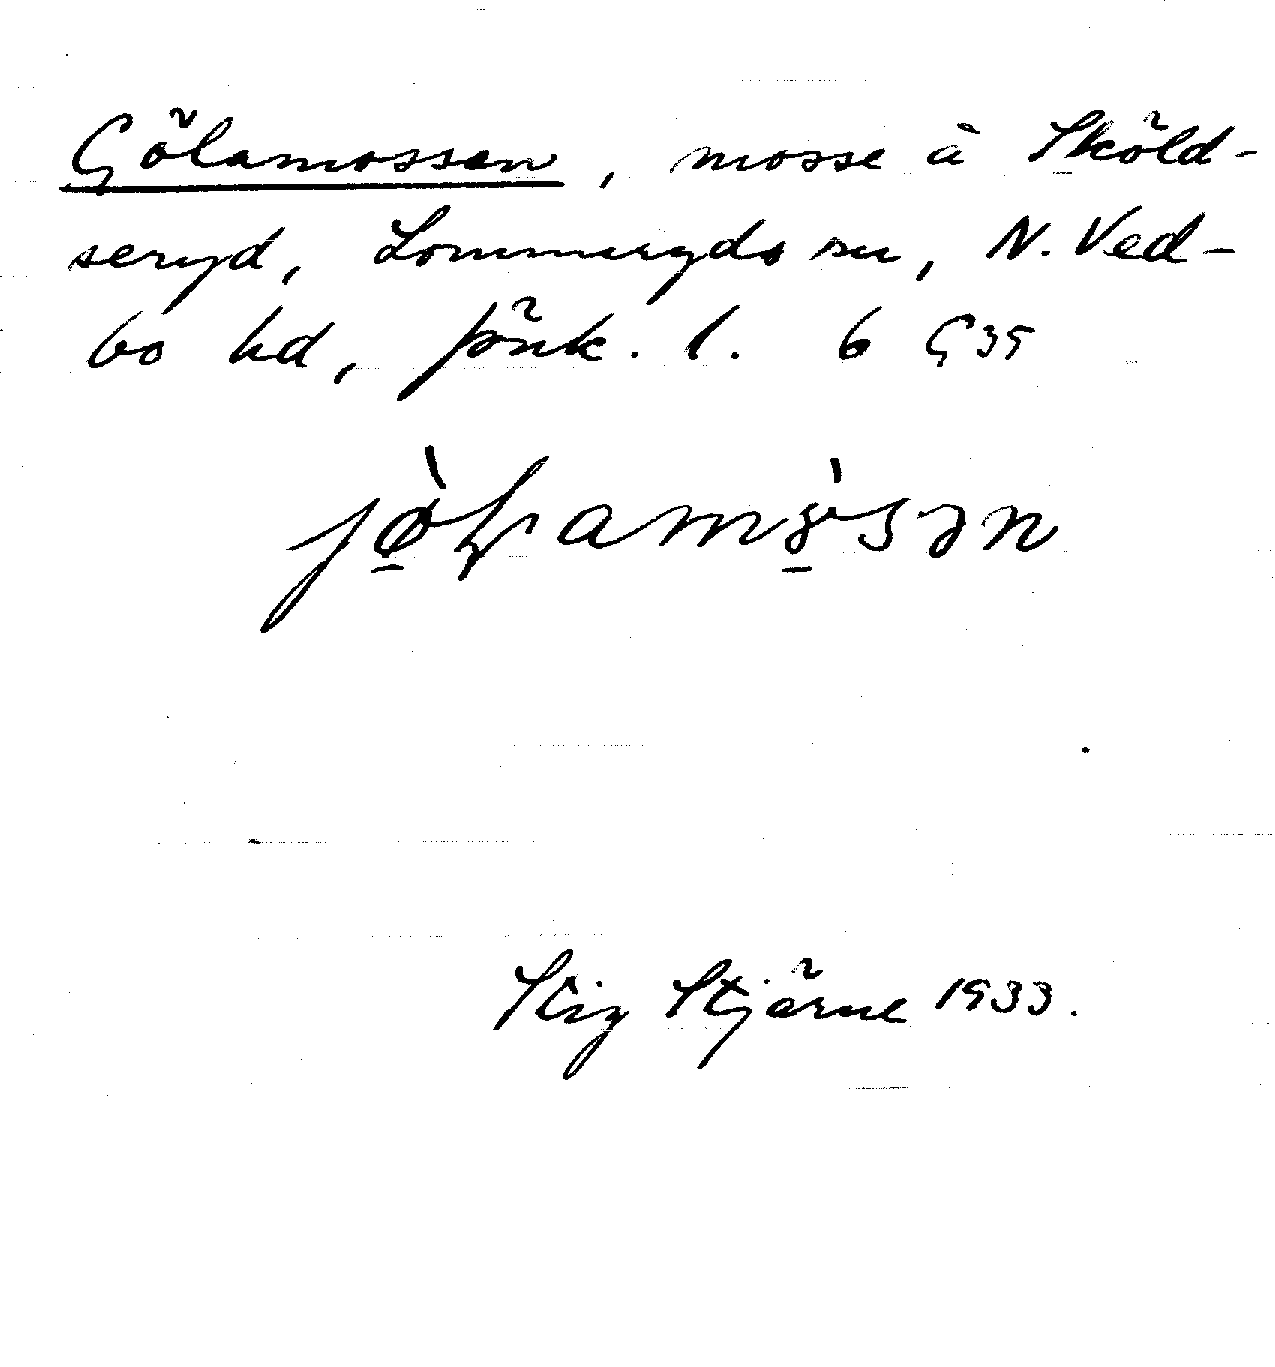 Gölamossen, mosse å Sköld-
seryd, Lommaryds sn, N. Ved-
bo hd, Jönk. l. 6 G 35
Stig Stjärne 1933.